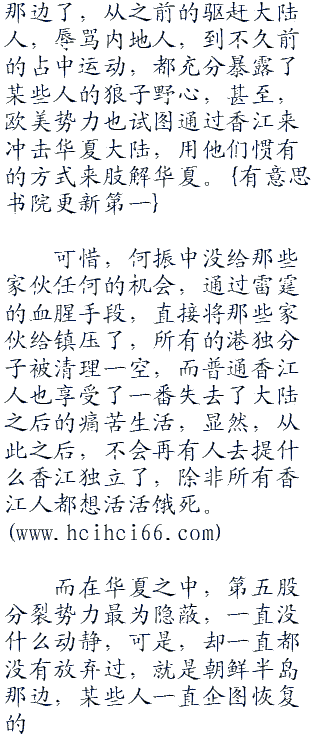 那边了，从之前的驱赶大陆
人，辱骂内地人，到不久前
的占中运动，都充分暴露了
某些人的狼子野心，甚至，
欧美势力也试图通过香江来
冲击华夏大陆，用他们惯有
的方式来肢解华夏。{有意思
书院更新第一}
可惜，何振中没给那些
家伙任何的机会，通过雷霆
的血腥手段，直接将那些家
伙给镇压了，所有的港独分
子被清理一空，而普通香江
人也享受了一番失去了大陆
之后的痛苦生活，显然，从
此之后，不会再有人去提什
么香江独立了，除非所有香
江人都想活活饿死。
(www.hcihci66.com)
而在华夏之中，第五股
分裂势力最为隐蔽，一直没
什么动静，可是，却一直都
没有放弃过，就是朝鲜半岛
那边，某些人一直企图恢复
的